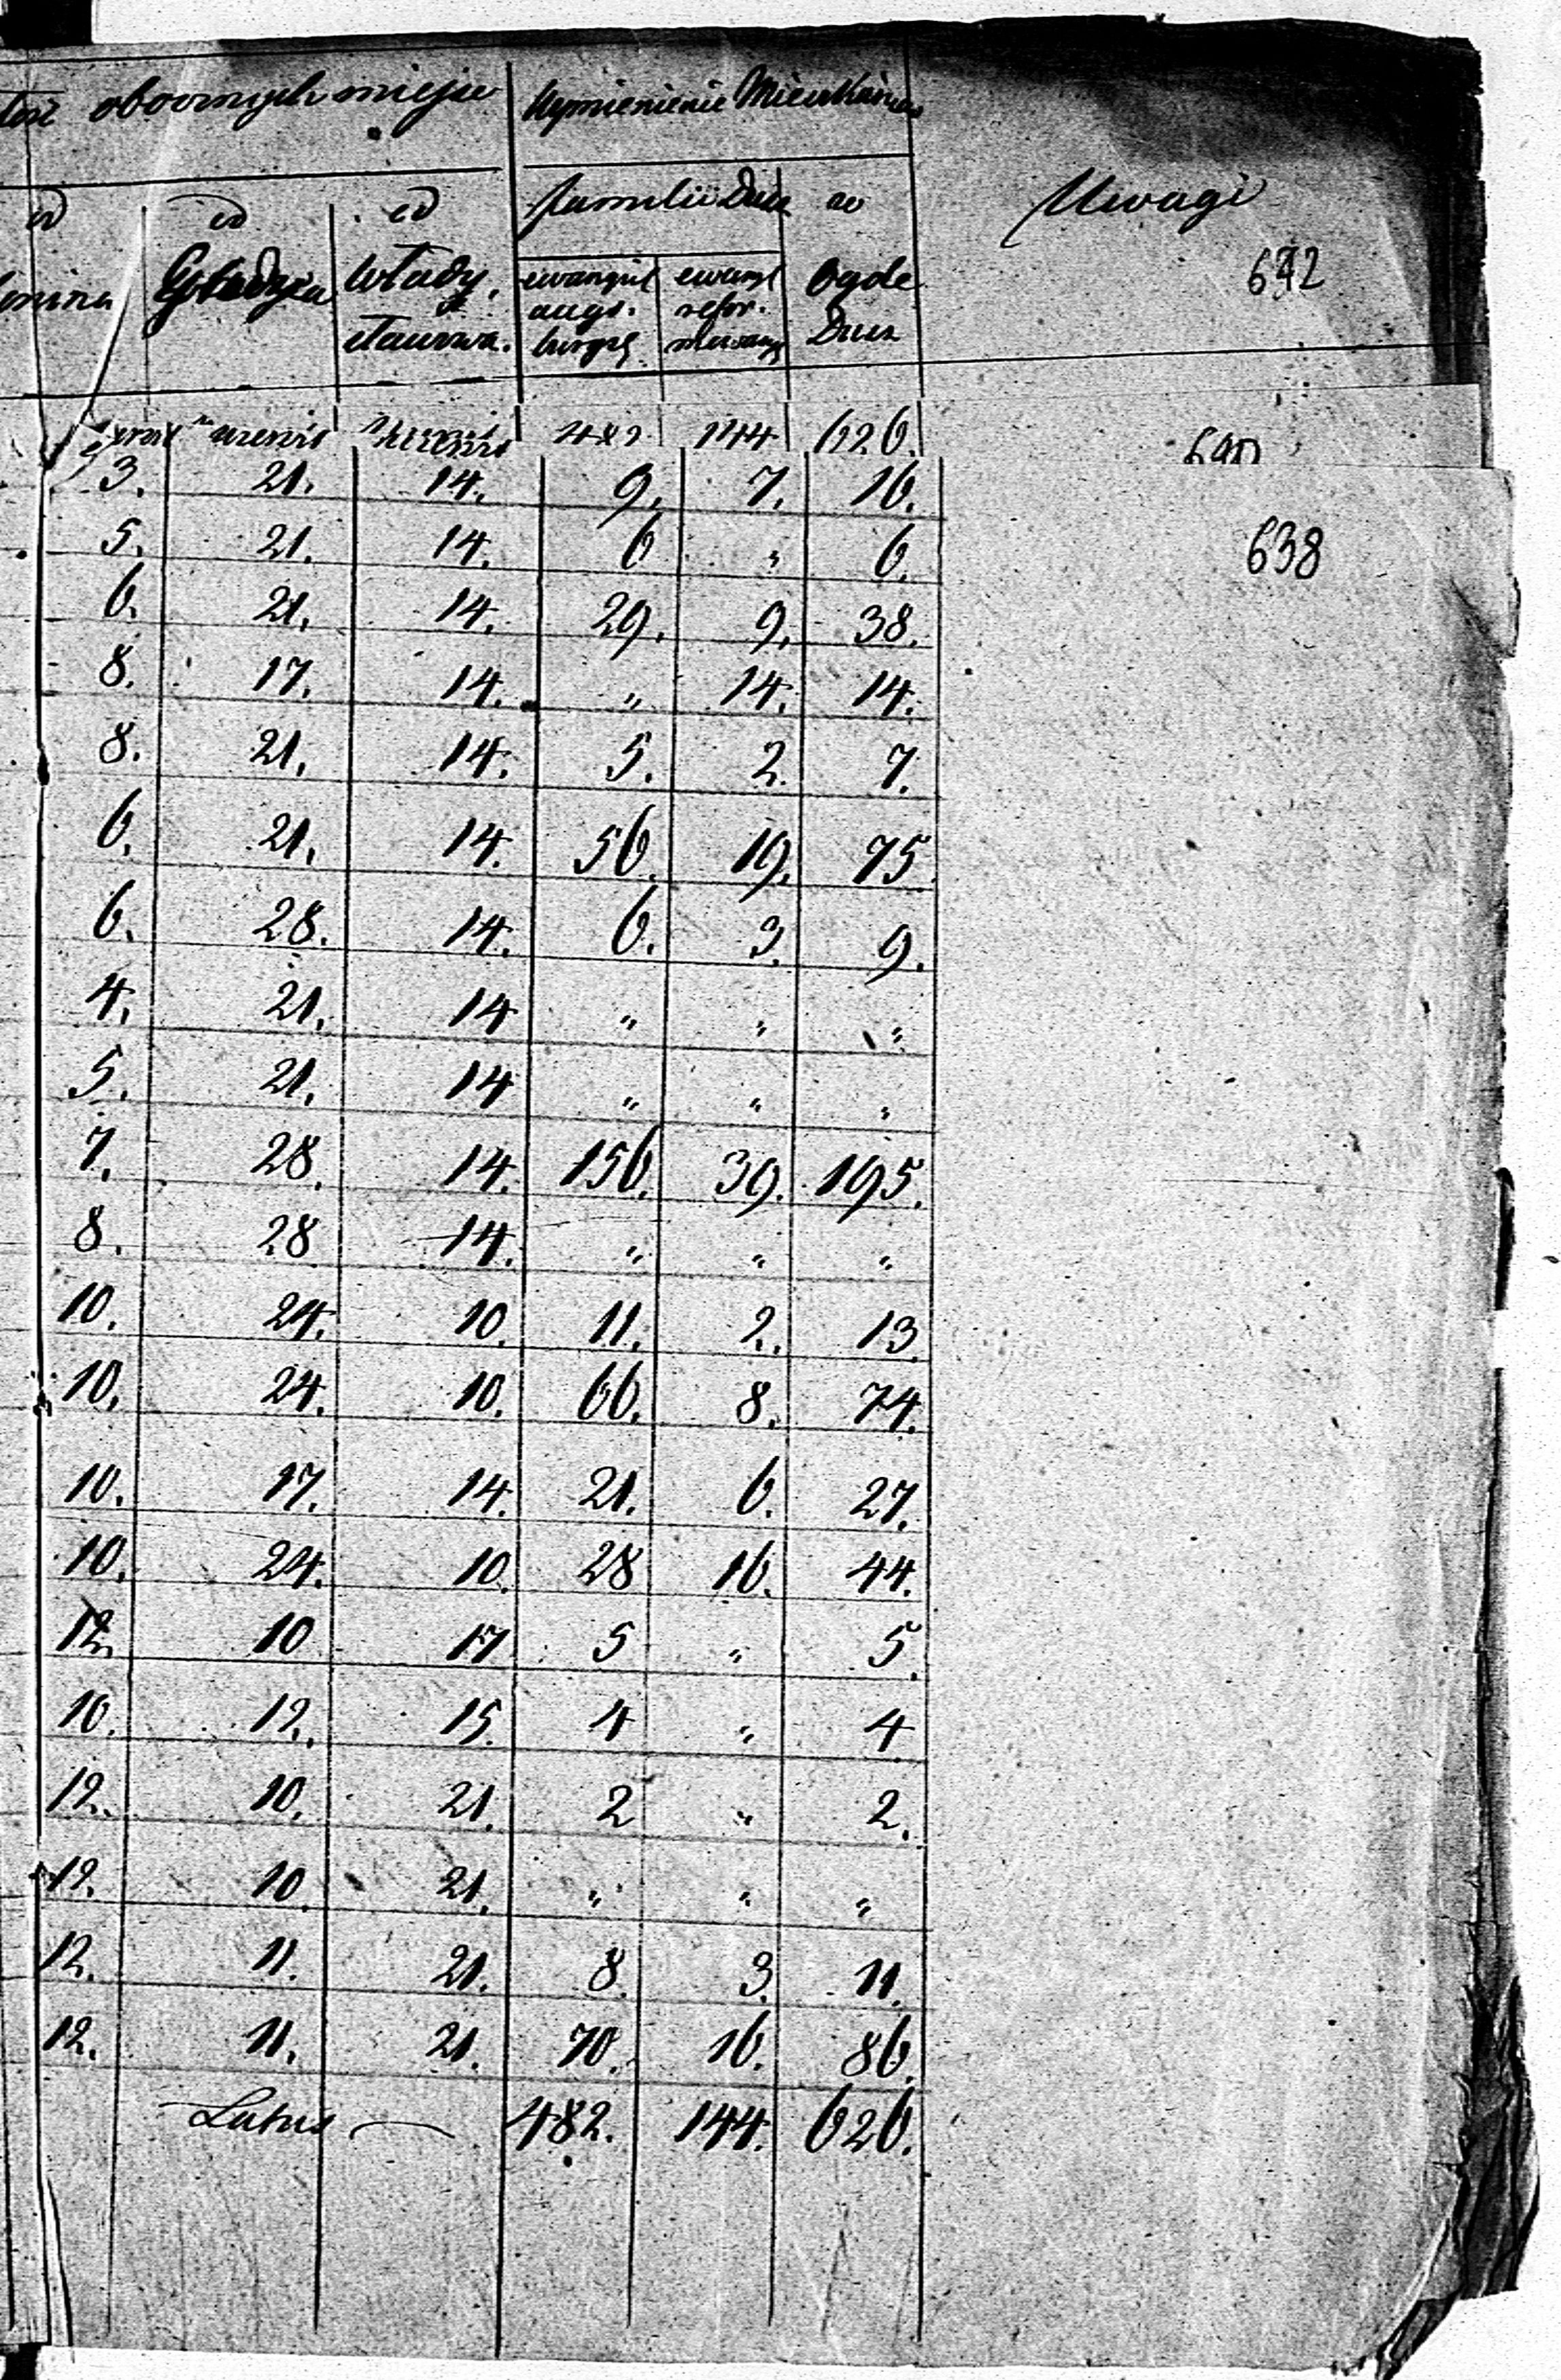 obocznych miejsc Wymienienie Mieszkańców
od od od familii Dusz w Uwagi
Gołądzia Władzy ewangiel ewang Ogóle 692
augs. refor. Dusz
burgs.
482 144 626. 690
3. 21. 14. 9. 7. 16.
5. 21. 14. 6 " 6. 638
6. 21. 14. 29. 9. 38.
8. 17. 14. " 14. 14.
8. 21. 14. 5. 2. 7.
6. 21. 14. 56. 19. 75.
6. 28. 14. 6. 3. 9.
4. 21. 14 " " "
5. 21. 14 " " "
7. 28. 14. 156. 39. 195.
8. 28 14. " " "
10. 24. 10. 11. 2. 13.
10. 24. 10. 66. 8. 74.
10. 17. 14. 21. 6. 27.
10. 24. 10. 28 16. 44.
12. 10 17 5 " 5.
10. 12. 15. 4 " 4
12. 10. 21. 2 " 2.
12. 10. 21. " " "
12. 11. 21. 8. 3. 11.
12. 11. 21. 70. 16. 86.
Latus — 482. 144. 626.